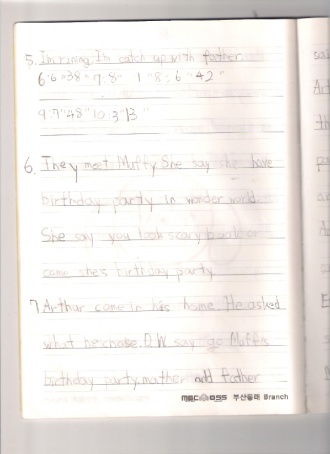 5. I'm runing I'm catch up with father
6'6"38 = 7.8" 1"8 : 6"42"
9:7"48"10.3"13"
6. They meet Muffy She say she have
birthday party in wonder world.
She say you look scary book or
come she's birthday party
7 Arthur come in his home. He asked
what he chose. D.W say go Muffy's
birthday party. mother and father
MBC ESS 부산동래 Branch